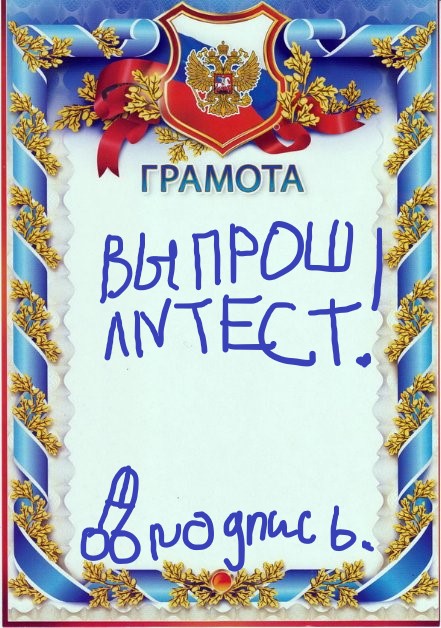 ГРАМОТА
ВЫ ПРОШ
ЛИ ТЕСТ!
подпись.